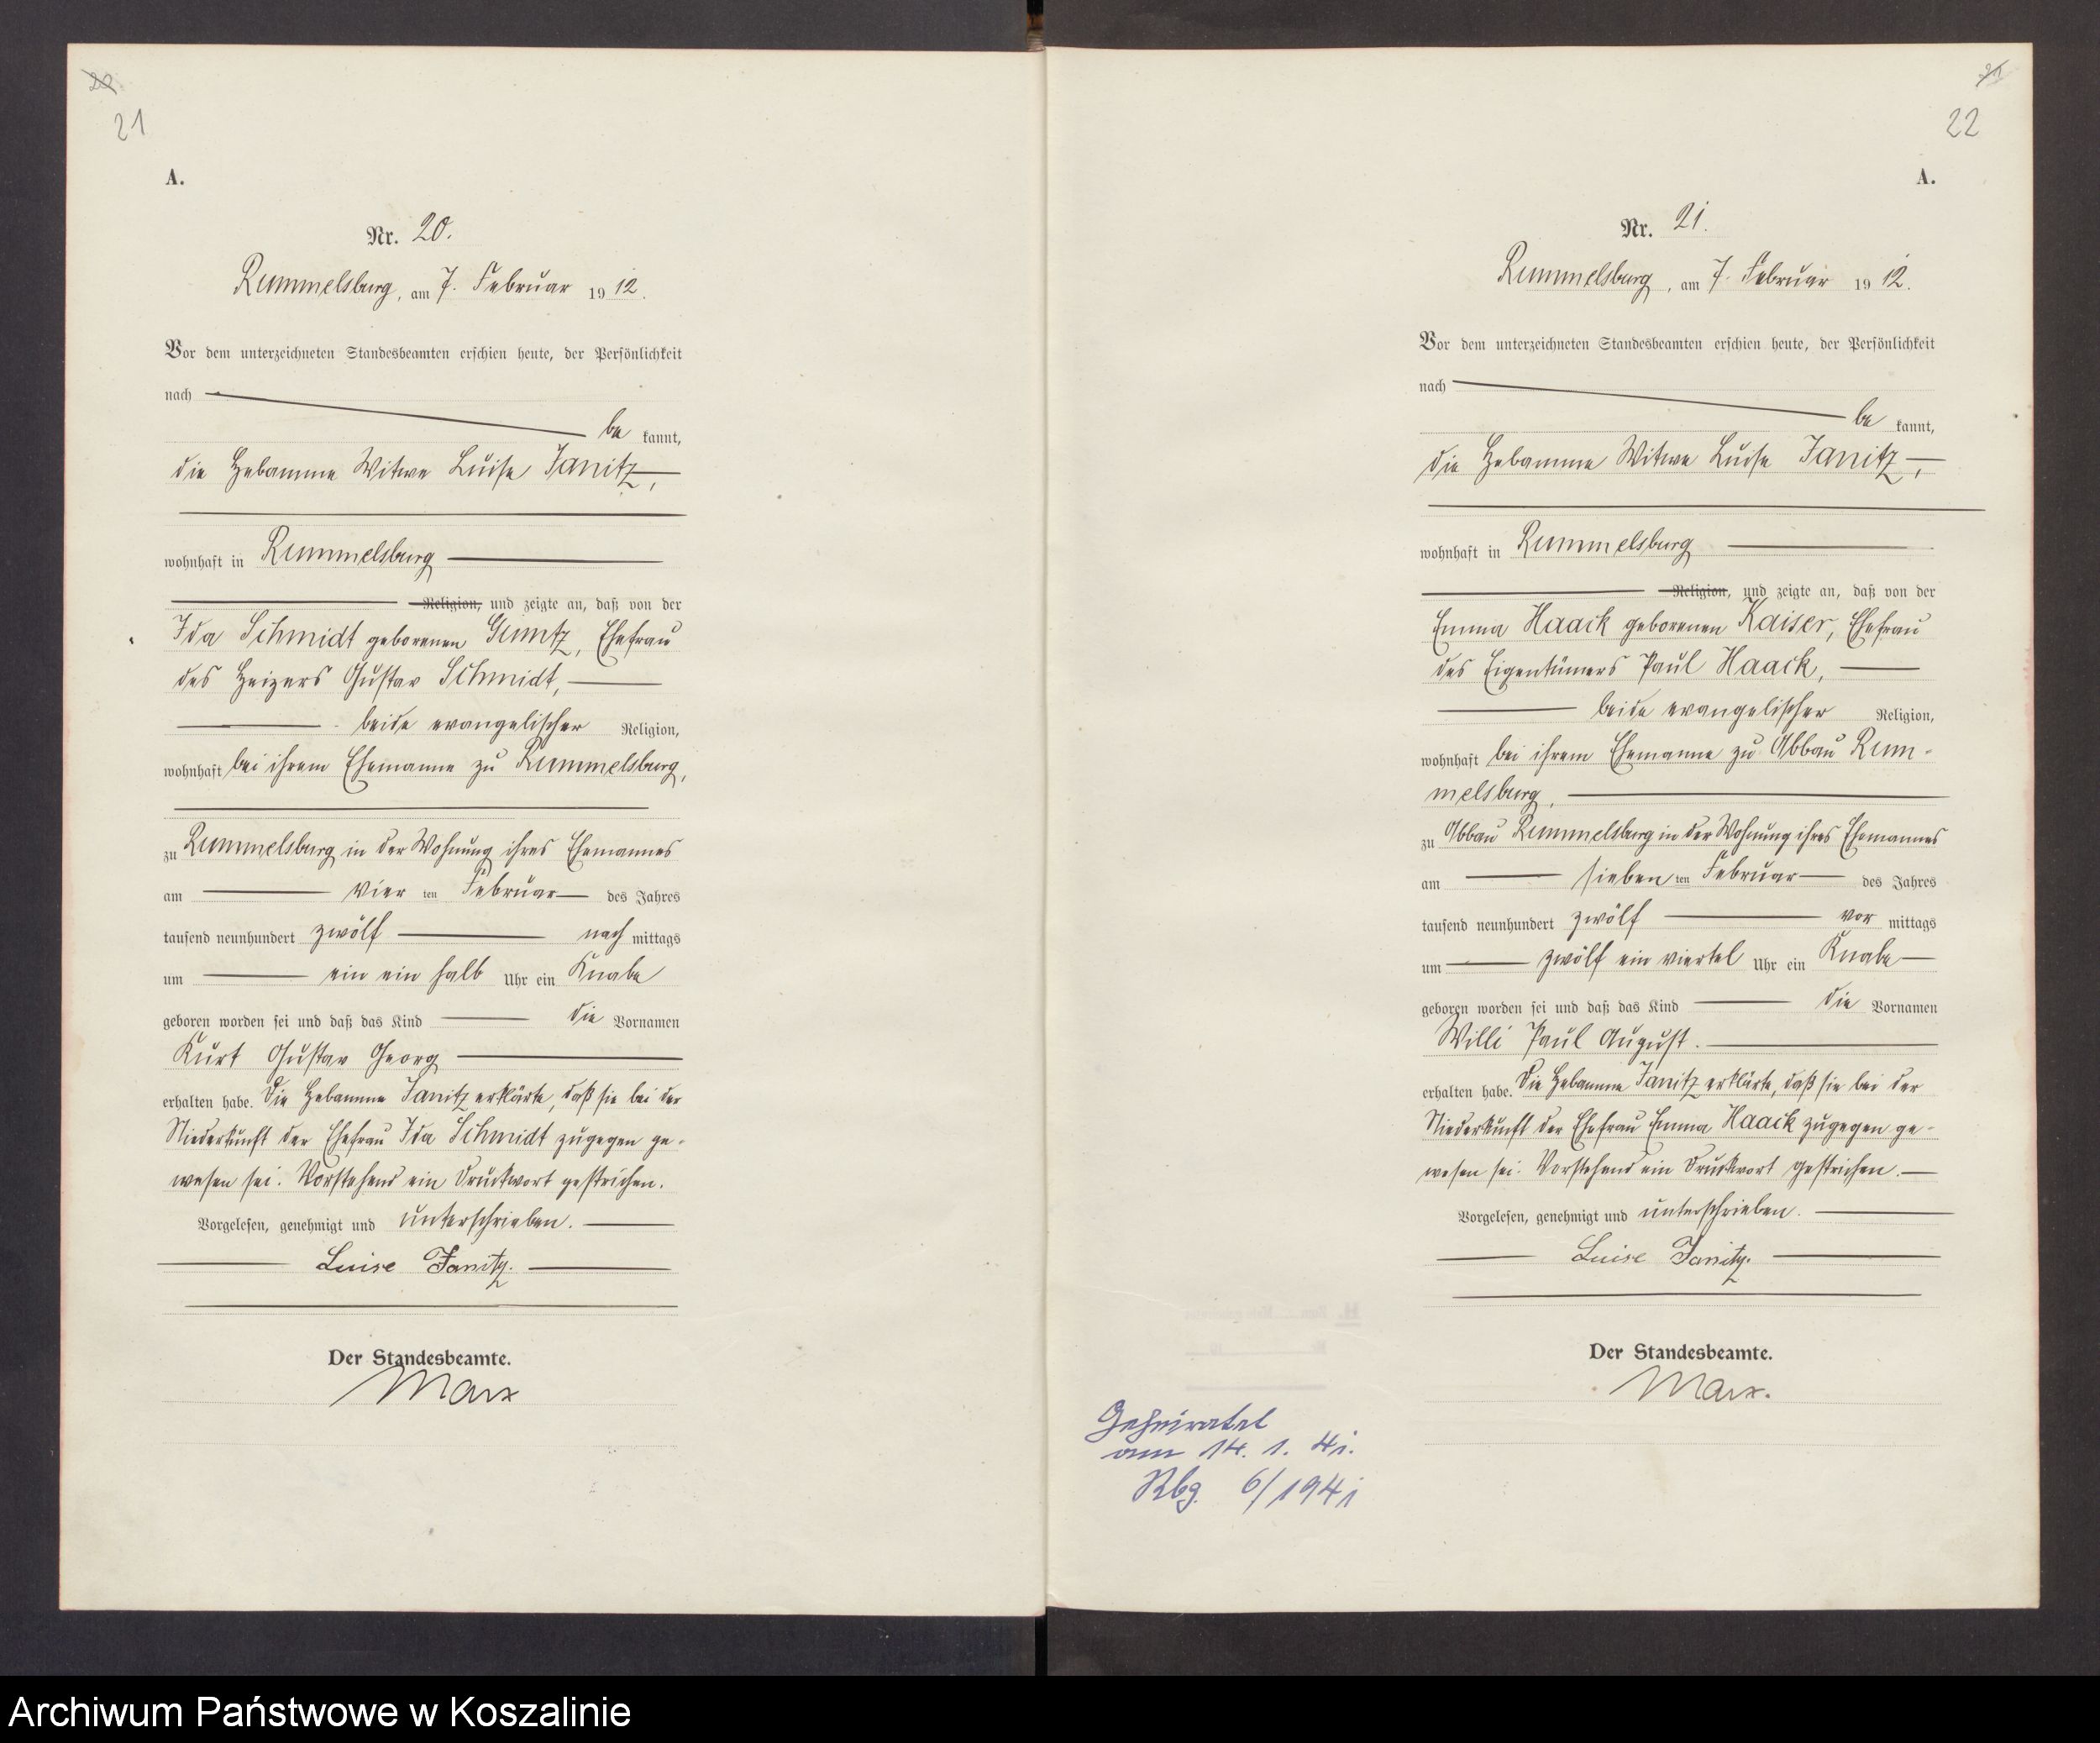 20
21
A.
Nr. 20.
Rummelsburg, am 7. Februar 1912.
Vor dem unterzeichneten Standesbeamten erschien heute, der Persönlichkeit
nach
be kannt,
die Hebamme Witwe Luise Janitz,
wohnhaft in Rummelsburg
Religion, und zeigte an, daß von der
Ida Schmidt geborenen, Ehefrau
des Heizers Gustav Schmidt,
beide evangelischer Religion,
wohnhaft bei ihrem Ehemanne zu Rummelsburg,
zu Rummelsburg in der Wohnung ihres Ehemannes
am vier ten Februar des Jahres
tausend neunhundert zwölf nach mittags
um ein ein halb Uhr ein Knabe
geboren worden sei und daß das Kind die Vornamen
Kurt Gustav Georg
erhalten habe. Die Hebamme Janitz erklärte, daß sie bei der
Niederkunft der Ehefrau Ida Schmidt zugegen ge-
wesen sei. Vorstehend ein Druckwort gestrichen.
Vorgelesen, genehmigt und unterschrieben.
Luise Janitz.
Der Standesbeamte.
Marx
21
22
A.
Nr. 21.
Rummelsburg, am 7. Februar 1912.
Vor dem unterzeichneten Standesbeamten erschien heute, der Persönlichkeit
nach
be kannt,
die Hebamme Witwe Luise Janitz,
wohnhaft in Rummelsburg
Religion, und zeigte an, daß von der
Emma Haack geborenen Kaiser, Ehefrau
des Eigentümers Paul Haack,
beide evangelischer Religion,
wohnhaft bei ihrem Ehemanne zu Abbau Rum-
melsburg,
zu Abbau Rummelsburg in der Wohnung ihres Ehemannes
am sieben ten Februar des Jahres
tausend neunhundert zwölf vor mittags
um zwölf ein viertel Uhr ein Knabe
geboren worden sei und daß das Kind die Vornamen
Willi Paul August.
erhalten habe. Die Hebamme Janitz erklärte, daß sie bei der
Niederkunft der Ehefrau Emma Haack zugegen ge-
wesen sei. Vorstehend ein Druckwort gestrichen.
Vorgelesen, genehmigt und unterschrieben.
Luise Janitz.
Der Standesbeamte.
Marx.
Geheiratet
am 14. 1. 41.
Rbg. 6/1941
Archiwum Państwowe w Koszalinie